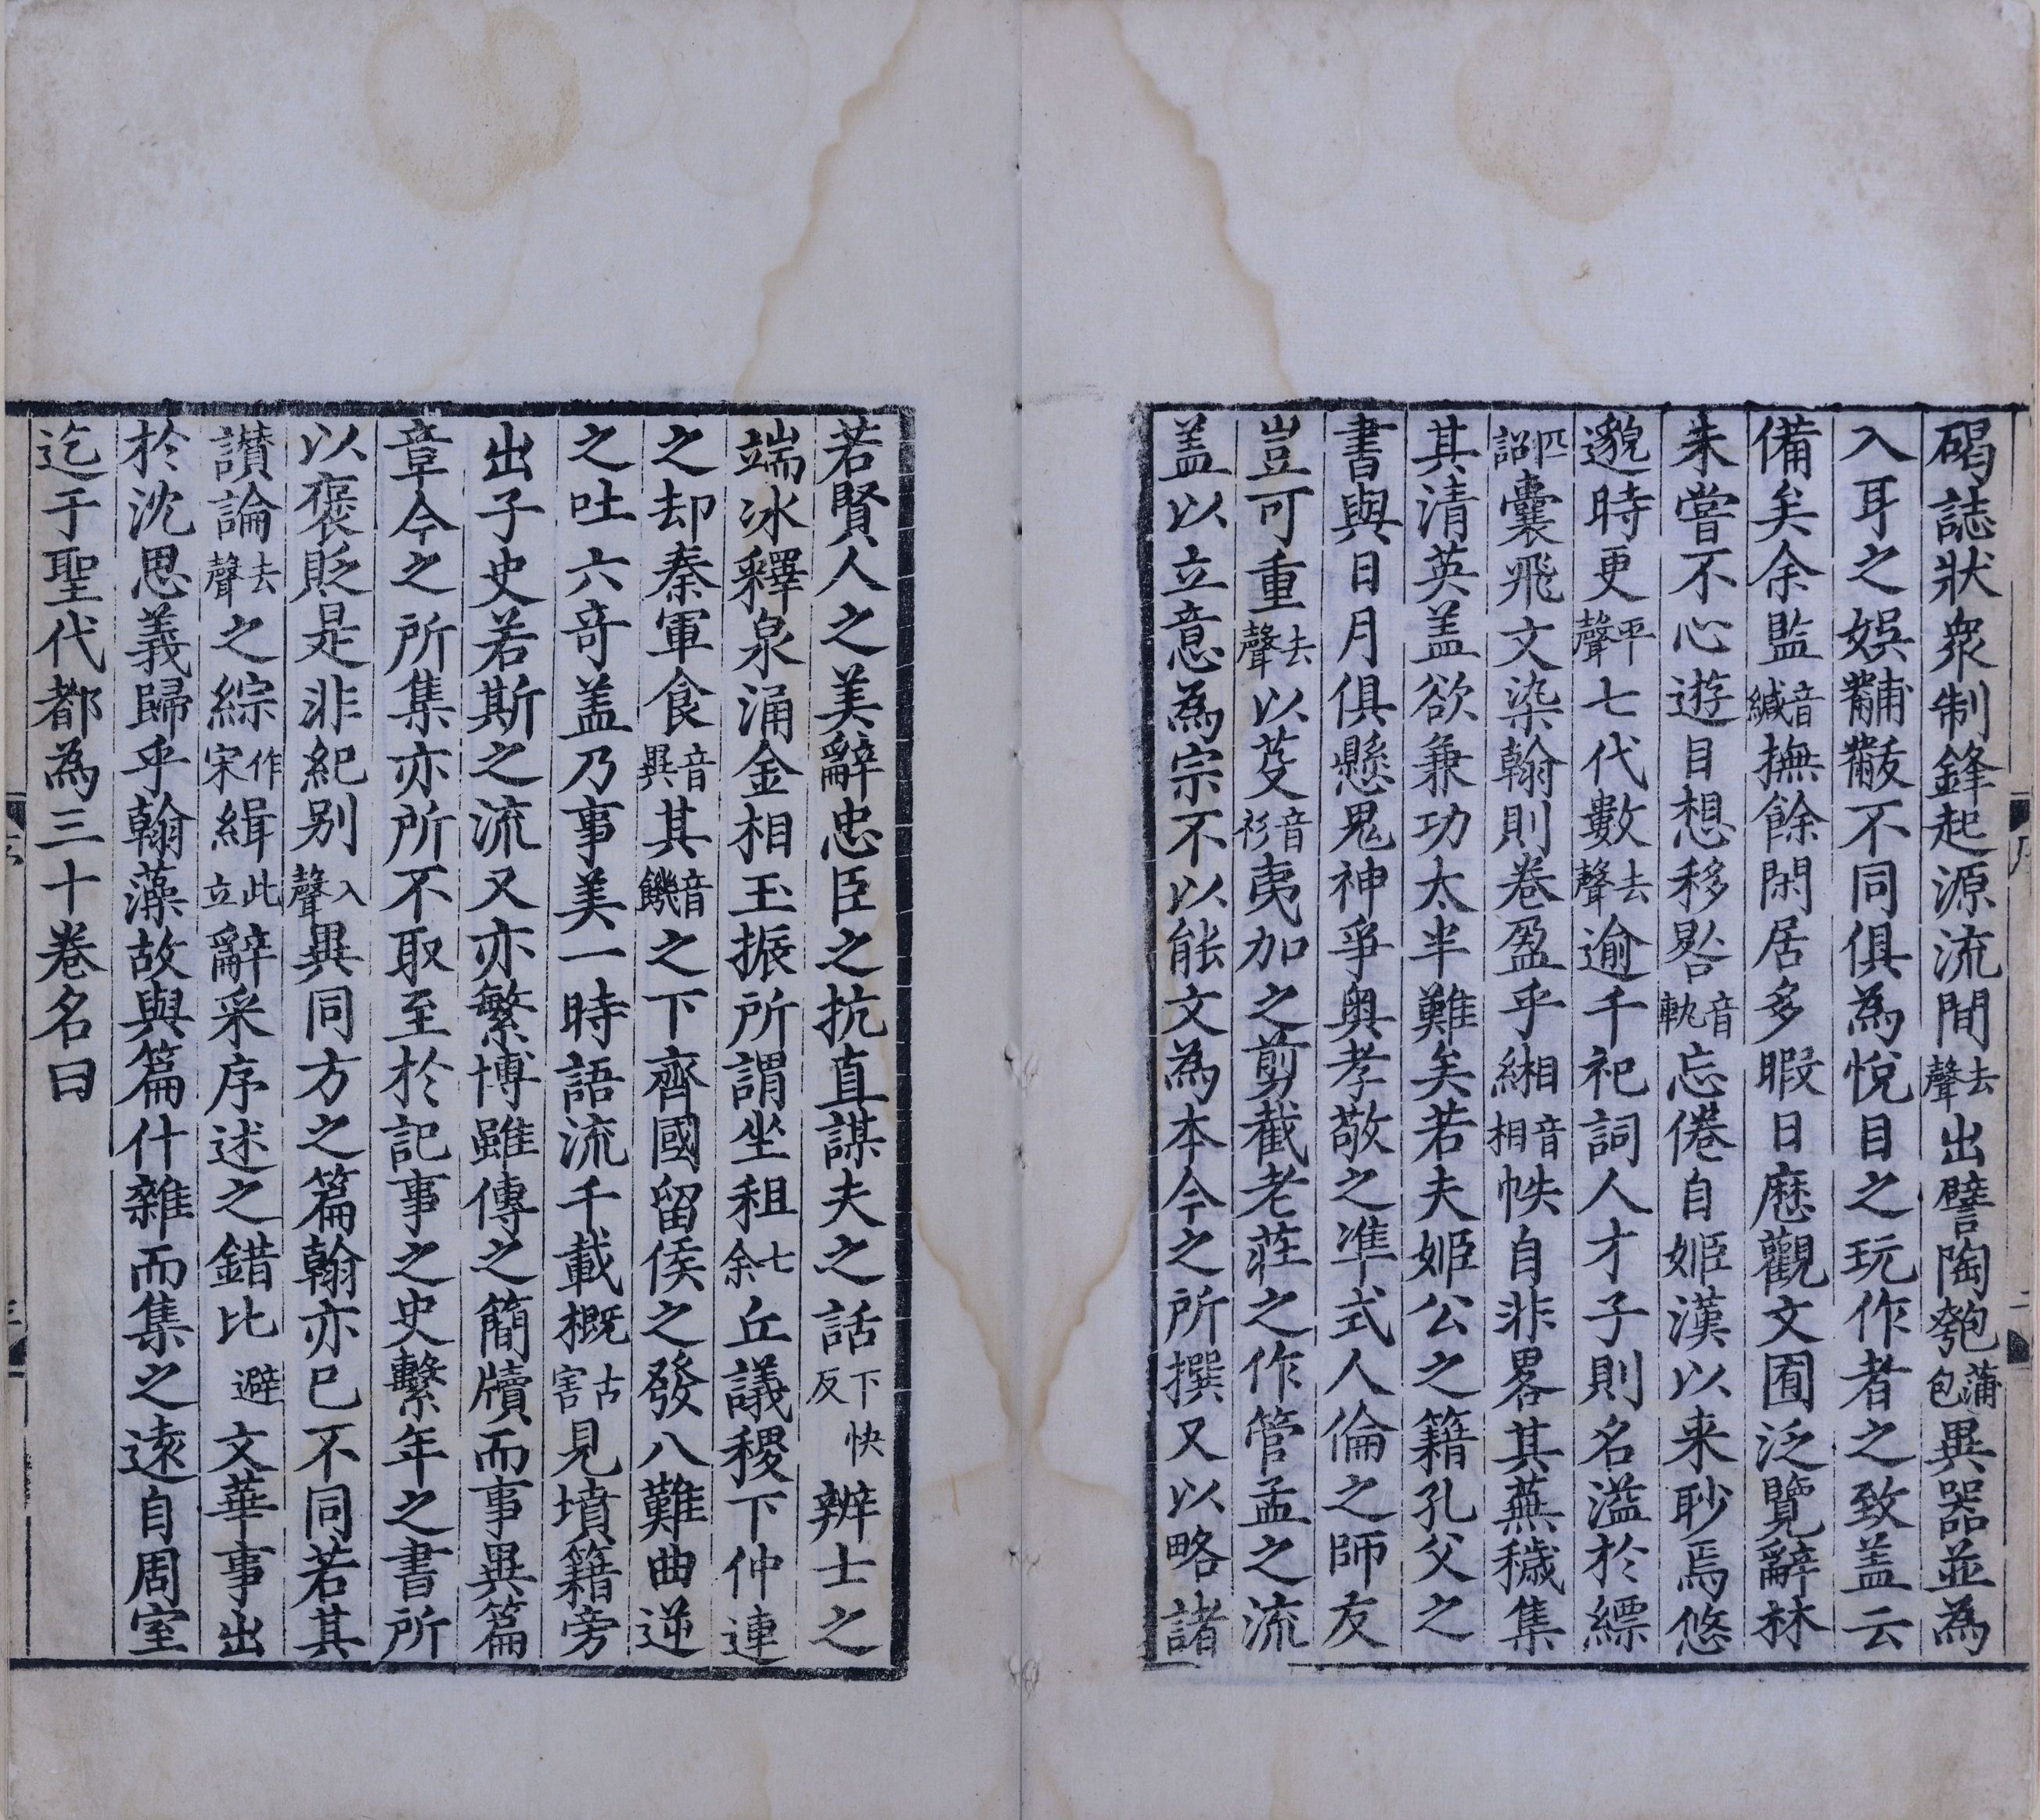 碣誌狀衆制鋒起源流間去聲出譬陶匏蒲包異器並為
入耳之娛黼黻不同俱為悅目之玩作者之致盖云
備矣余監音緘撫餘閑居多暇日歷觀文囿泛覽辭林
未嘗不心遊目想移晷音軌忘倦自姬漢以来眇焉悠
邈時更平聲七代數去聲逾千祀詞人才子則名溢於縹
匹詔囊飛文染翰則卷盈乎緗音相帙自非畧其蕪穢集
其清英盖欲兼功太半難矣若夫姬公之籍孔父之
書與日月俱懸鬼神爭奥孝敬之准式人倫之師友
豈可重去聲以芟音衫夷加之剪截老莊之作管孟之流
盖以立意為宗不以能文為本今之所撰又以略諸
若賢人之美辭忠臣之抗直謀夫之話下快反辨士之
端冰釋泉涌金相玉振所謂坐狙七余丘議稷下仲連
之却秦軍食音異其音饑之下齊國留侯之發八難曲逆
之吐六竒盖乃事美一時語流千載概古害見墳籍旁
出子史若斯之流又亦繁博雖傳之簡牘而事異篇
章今之所集亦所不取至於記事之史繫年之書所
以褒貶是非紀别入聲異同方之篇翰亦已不同若其
讃論去聲之綜作宋緝此立辭采序述之錯比避文華事出
於沈思義歸乎翰藻故與篇什雜而集之遠自周室
迄于聖代都為三十卷名曰